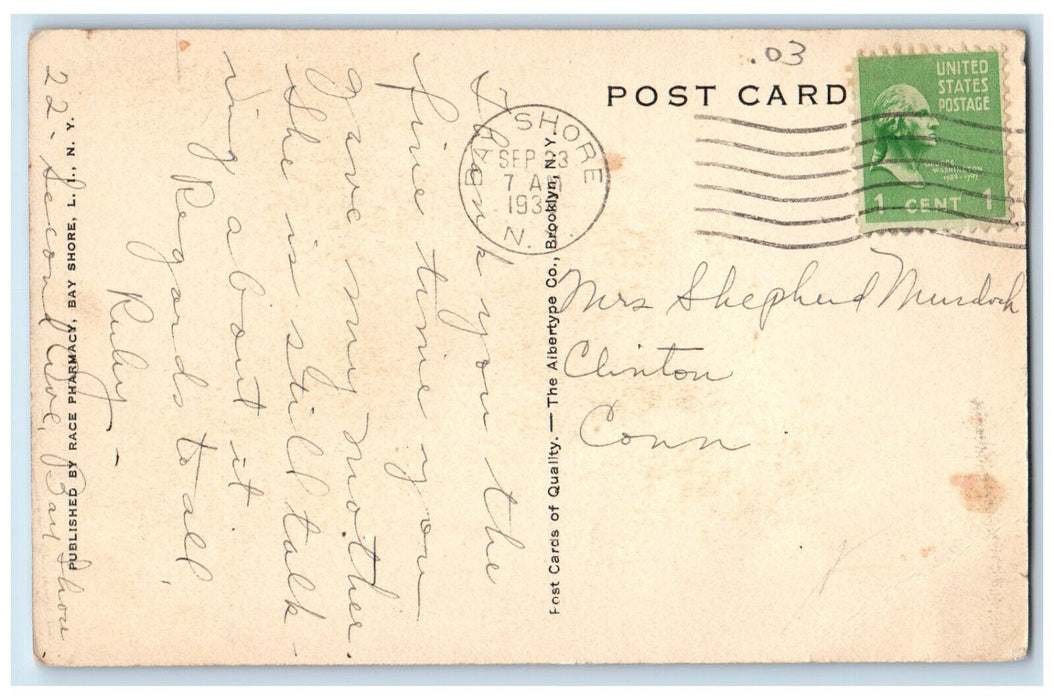 .03
POST CARD
UNITED
STATES
POSTAGE
GEORGE
WASHINGTON
1789-1797
1 CENT 1
BAY SHORE
SEP 23
7 AM
193
N.Y.
Mrs Shepherd Murdock
Clinton
Conn
Post Cards of Quality. — The Albertype Co., Brooklyn, N. Y.
Thank you the
fine time you
gave my mother.
She is still talk-
ing about it
Regards to all
Ruby -
PUBLISHED BY RACE PHARMACY, BAY SHORE, L. I., N. Y.
22 - Second Ave, Bay Shore